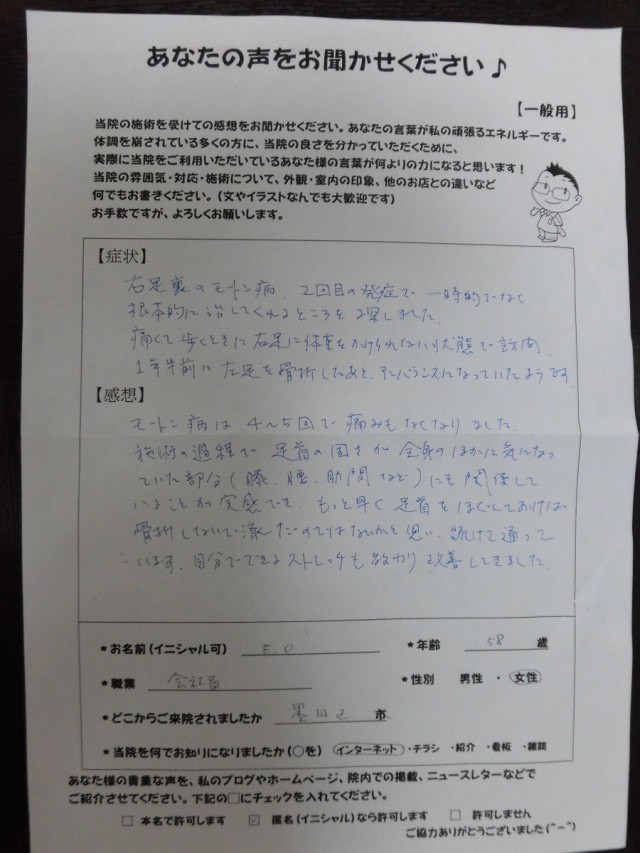 あなたの声をお聞かせください♪
【一般用】
当院の施術を受けての感想をお聞かせください。あなたの言葉が私の頑張るエネルギーです。
体調を崩されている多くの方に、当院の良さを分かっていただくために、
実際に当院をご利用いただいているあなた様の言葉が何よりの力になると思います！
当院の雰囲気・対応・施術について、外観・室内の印象、他のお店との違いなど
何でもお書きください。（文やイラストなんでも大歓迎です）
お手数ですが、よろしくお願いします。
【症状】
右足裏のモートン病、2回目の発症で一時的でなく
根本的に治してくれるところを探しました。
痛くて歩くときに右足に体重をかけられない状態で訪問
1年半前に左足を骨折したあと、アンバランスになっていたようです
【感想】
モートン病は4〜5回で痛みもなくなりました
施術の過程で足首の固さが全身のほかに気になっ
ていた部分（膝、腰、肋間など）にも関係して
いることが実感でき、もっと早く足首をほぐしておけば
骨折しないで済んだのではないかと思い、続けて通って
います。自分でできるストレッチも教わり改善してきました。
*お名前（イニシャル可） E.O *年齢 58 歳
*職業 会社員 *性別 男性・女性
*どこからご来院されましたか 墨田区 市
*当院を何でお知りになりましたか（○を） インターネット・チラシ・紹介・看板・雑誌
あなた様の貴重な声を、私のブログやホームページ、院内での掲載、ニュースレターなどで
ご紹介させてください。下記の□にチェックを入れてください。
□ 本名で許可します ☑ 匿名（イニシャル）なら許可します □ 許可しません
ご協力ありがとうございました(^-^)